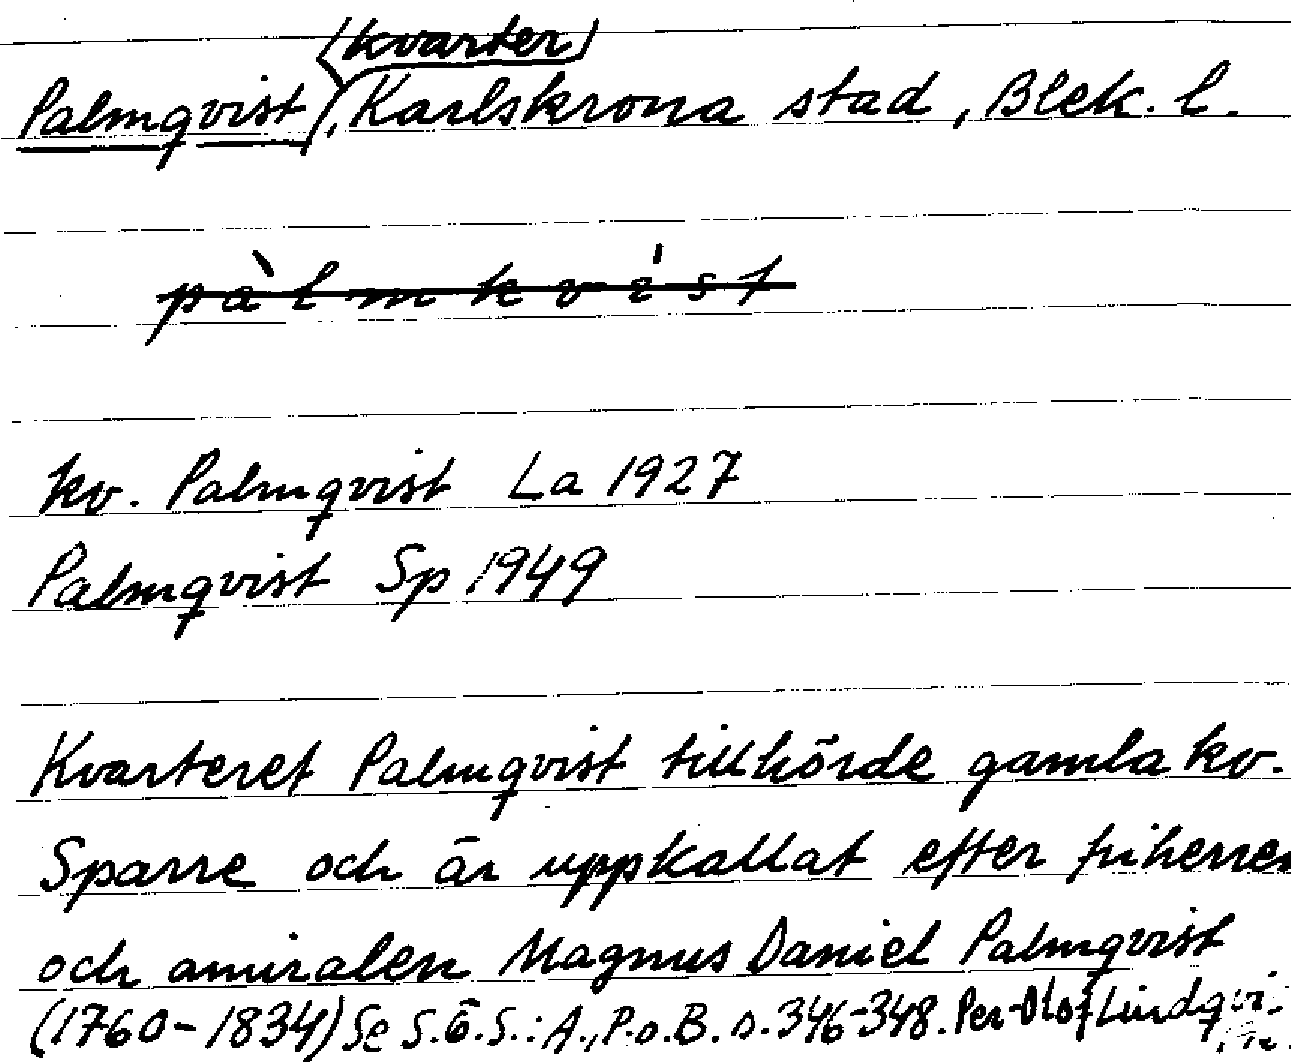 Palmqvist (kvarter), Karlskrona stad, Blek. l.
pàlmkvìst
kv. Palmqvist La 1927
Palmqvist Sp 1949
Kvarteret Palmqvist tillhörde gamla kv.
Sparre och är uppkallat efter friherren
och amiralen Magnus Daniel Palmqvist
(1760-1834) Se S.Ö.S.: A., P.o.B. s. 346-348. Per-Olof